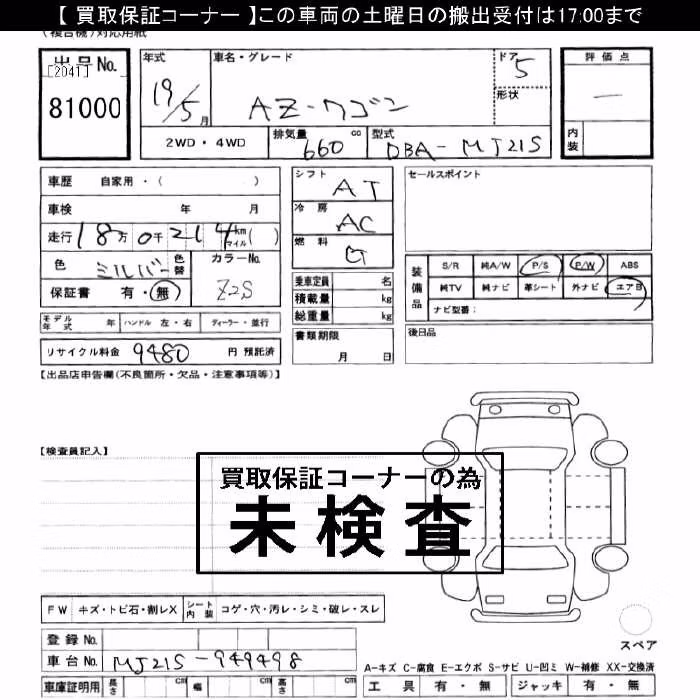 【 買取保証コーナー 】この車両の土曜日の搬出受付は17:00まで
(複合機)対応用紙
出品No.
[2041]
81000
年式
19/5月
車名・グレード
AZ-ワゴン
ドア
5
形状
評価点
一
内装
2WD・4WD
排気量
660
cc
型式
DBA-MJ21S
車歴
自家用・(　　　)
車検
年　月
走行
18万0千214kmマイル(　)
色
シルバー
色替
カラーNo.
Z2S
保証書
有・無
モデル年式
年
ハンドル
左・右
ディーラー・並行
リサイクル料金
9480
円 預託済
シフト
AT
冷房
AC
燃料
G
乗車定員
名
積載量
kg
総重量
kg
書類期限
月　日
セールスポイント
装備品
S/R
純A/W
P/S
P/W
ABS
純TV
純ナビ
革シート
外ナビ
エアB
ナビ型番:
後日品
【出品店申告欄(不良箇所・欠品・注意事項等)】
【検査員記入】
買取保証コーナーの為
未検査
FW
キズ・トビ石・割レX
シート内装
コゲ・穴・汚レ・シミ・破レ・スレ
登録No.
車台No.
MJ21S-949498
車庫証明用
長さ
cm
幅
cm
高さ
cm
スペア
A-キズ C-腐食 E-エクボ S-サビ U-凹ミ W-補修 XX-交換済
工具
有・無
ジャッキ
有・無